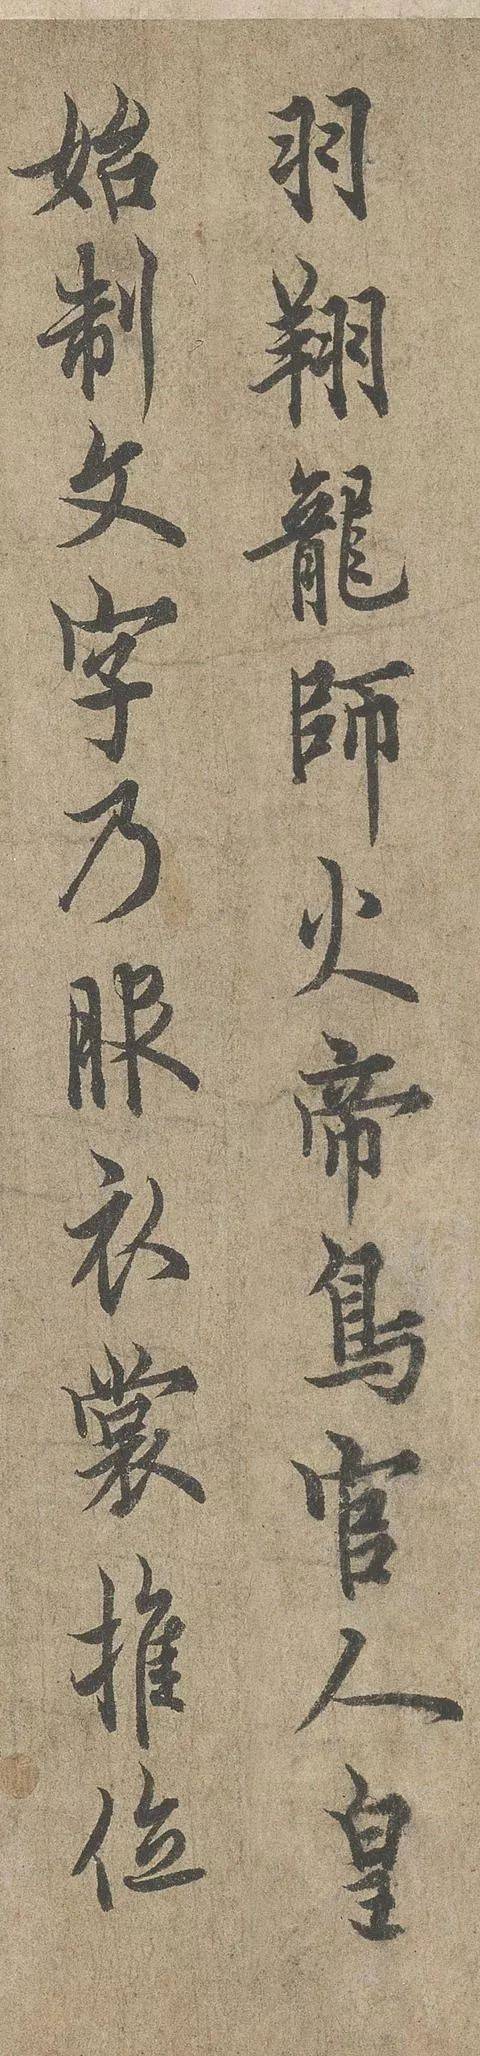 羽翔龍師火帝鳥官人皇
始制文字乃服衣裳推位